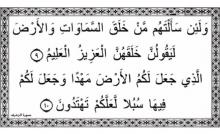 وَلَئِن سَأَلْتَهُم مَّنْ خَلَقَ السَّمَاوَاتِ وَالْأَرْضَ
لَيَقُولُنَّ خَلَقَهُنَّ الْعَزِيزُ الْعَلِيمُ ٩
الَّذِي جَعَلَ لَكُمُ الْأَرْضَ مَهْدًا وَجَعَلَ لَكُمْ
فِيهَا سُبُلًا لَّعَلَّكُمْ تَهْتَدُونَ ١٠
سورة الزخرف